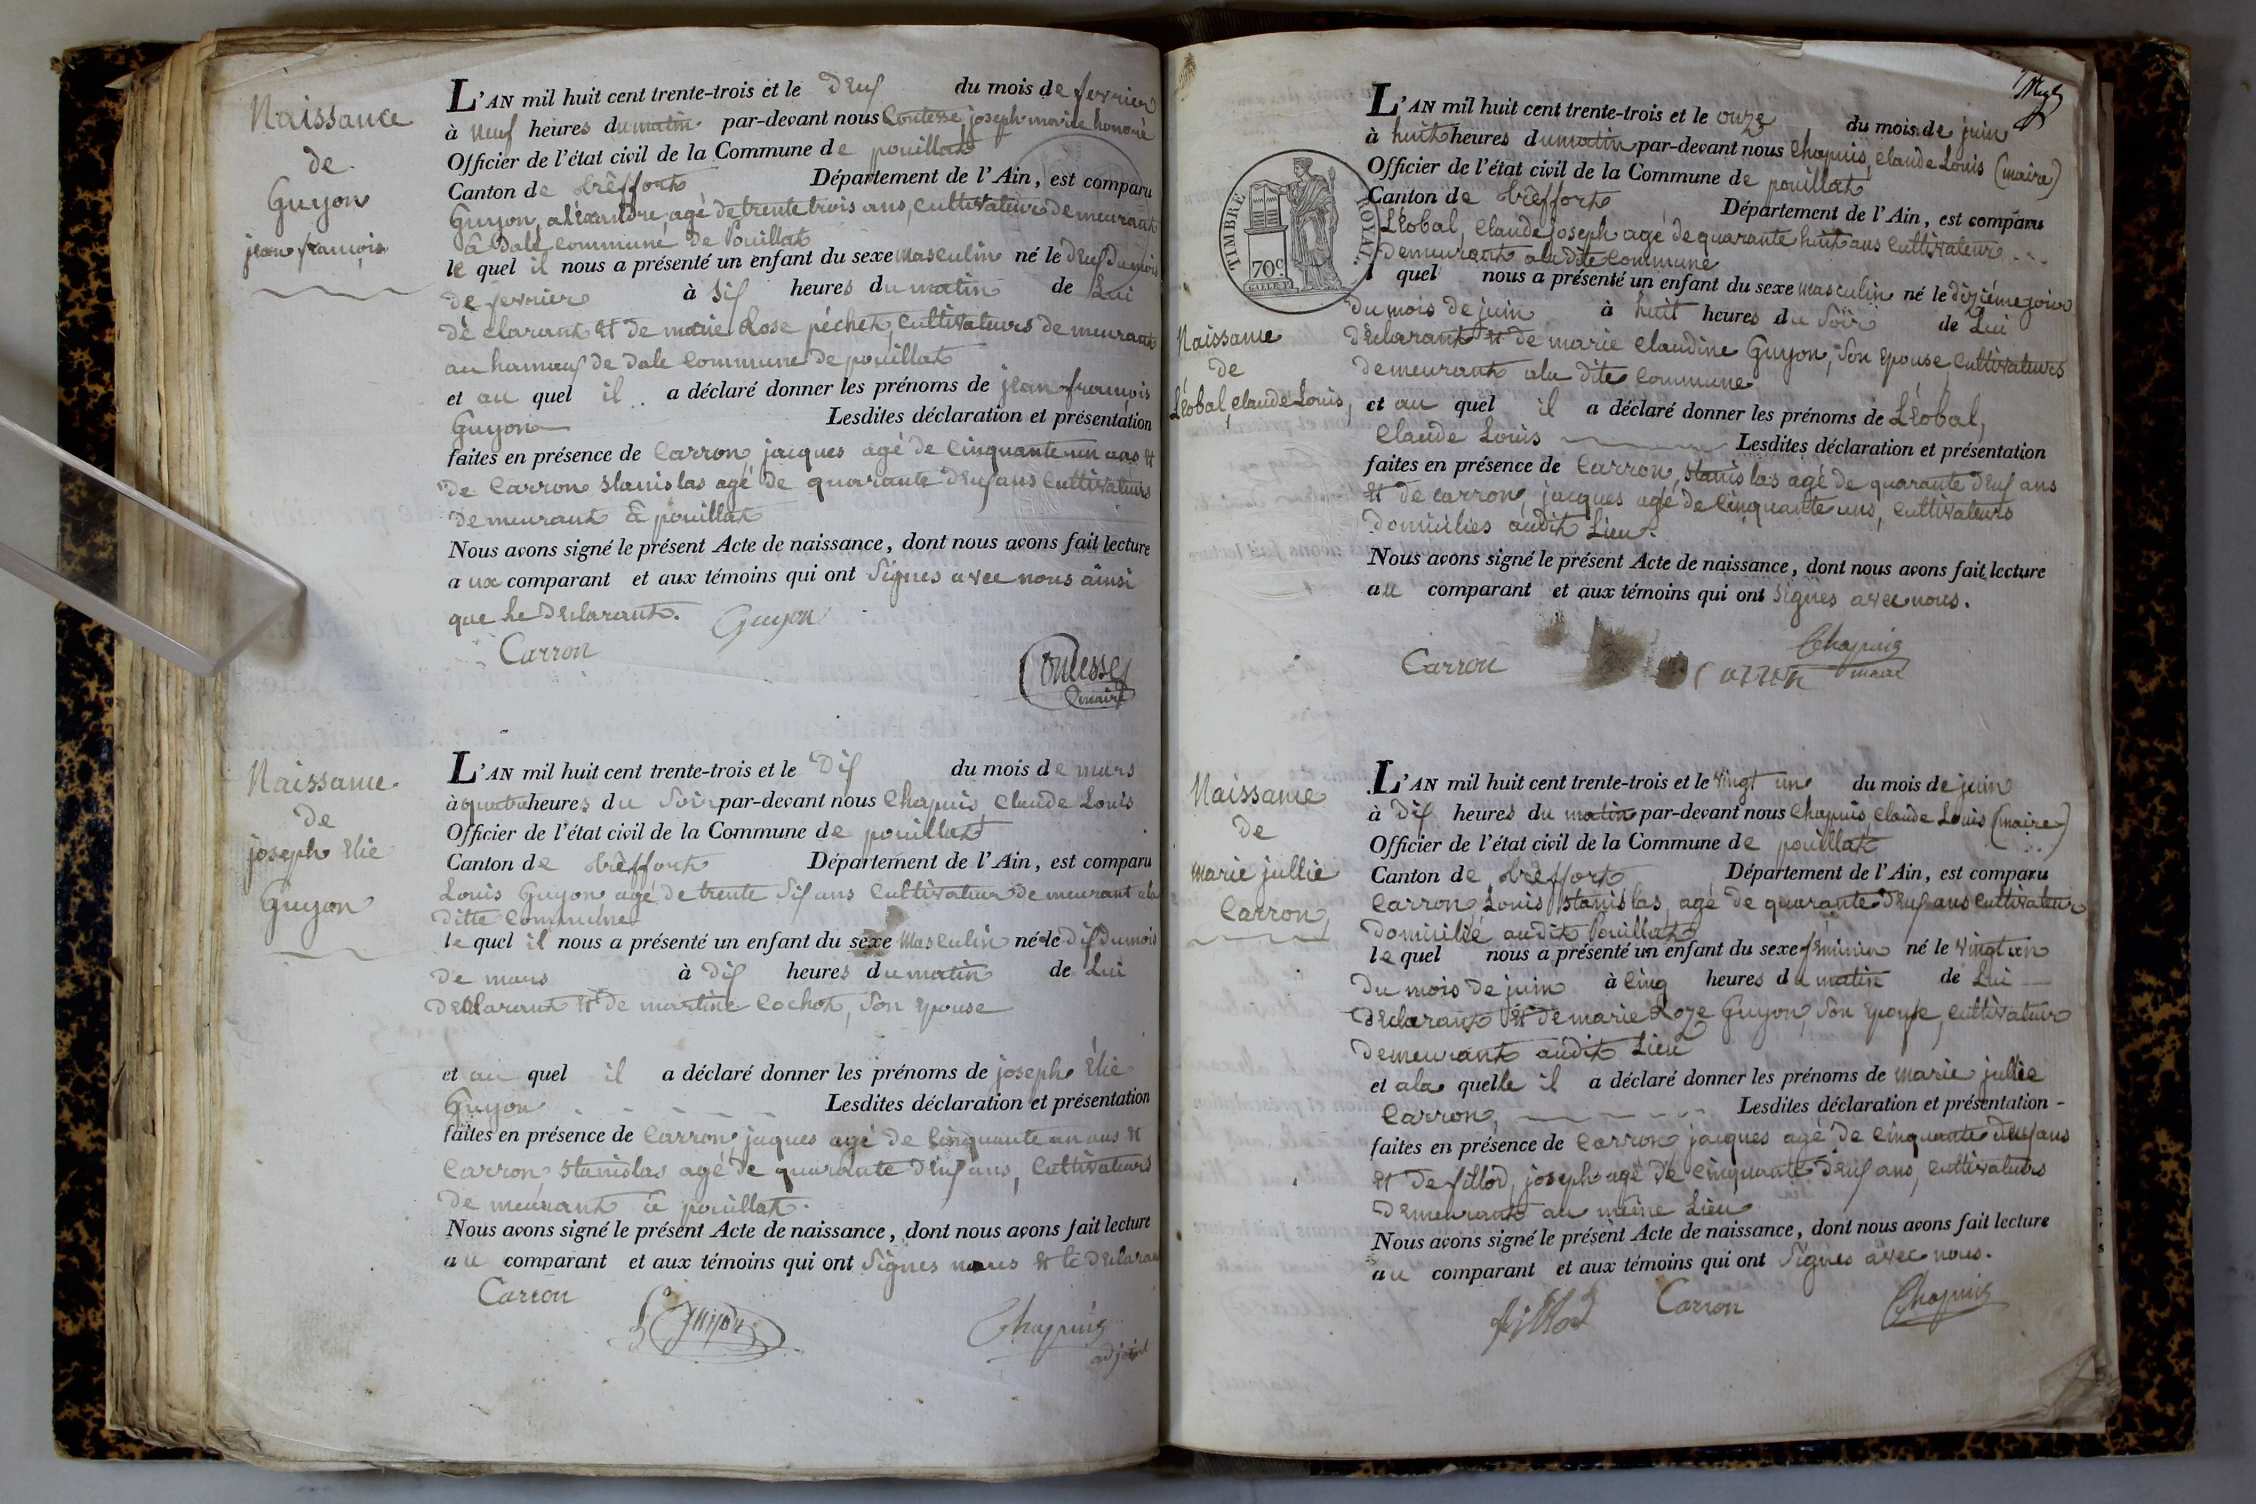 Naissance
de
Guyon
jean françois
L'AN mil huit cent trente-trois et le deuf du mois de fevrier
à neuf heures du matin par-devant nous Contesse joseph marie honoré
Officier de l'état civil de la Commune de pouillat
Canton de trêffort Département de l'Ain, est comparu
Guyon, aléxandre agé de trente trois ans, cultivateur demeurant
à Dalle commune de Pouillat
le quel il nous a présenté un enfant du sexe masculin né le deuf du mois
de fevrier à Sif heures du matin de Lui
déclarant et de marie Rose péchet, cultivateurs demeurant
au hameuf de dale commune de pouillat
et au quel il a déclaré donner les prénoms de jean françois
Guyon Lesdites déclaration et présentation
faites en présence de Carron jacques agé de cinquante un ans et
de Carron stanislas agé de quarante deuf ans cultivateurs
demeurant à pouillat
Nous avons signé le présent Acte de naissance, dont nous avons fait lecture
aux comparant et aux témoins qui ont Signés avec nous ainsi
que le declarant. Guyon
Carron
Contesse
maire
Naissance
de
joseph Elie
Guyon
L'AN mil huit cent trente-trois et le Dif du mois de mars
à quatre heures du Soir par-devant nous Chapuis Claude Louis
Officier de l'état civil de la Commune de pouillat
Canton de trêffort Département de l'Ain, est comparu
Louis Guyon agé de trente Sif ans Cultivateur demeurant ala
ditte Commune
le quel il nous a présenté un enfant du sexe masculin né le dif du mois
de mars à dif heures du matin de Lui
declarant et de martine Cochot, Son epouse
et au quel il a déclaré donner les prénoms de joseph Elie
Guyon Lesdites déclaration et présentation
faites en présence de Carron jaques agé de cinquante un ans et
Carron stanislas agé de quarante deuf ans, Cultivateurs
demeurant à pouillat.
Nous avons signé le présent Acte de naissance, dont nous avons fait lecture
au comparant et aux témoins qui ont Signés nous et le declarant
Carron
Guyon
Chapuis
adjoint
TIMBRE ROYAL.
70c
Naissance
de
Léobal, Claude Louis,
L'AN mil huit cent trente-trois et le onze du mois de juin
à huit heures du matin par-devant nous Chapuis, Claude Louis (maire)
Officier de l'état civil de la Commune de pouillat
Canton de trêffort Département de l'Ain, est comparu
Léobal, Claude joseph agé de quarante huit ans Cultivateur
demeurant ala dite Commune
l quel nous a présenté un enfant du sexe masculin né le dixiéme jour
du mois de juin à huit heures du Soir de Lui
déclarant et de marie Claudine Guyon, Son epouse Cultivateurs
demeurant ala dite Commune
et au quel il a déclaré donner les prénoms de Léobal,
Claude Louis Lesdites déclaration et présentation
faites en présence de Carron, stanislas agé de quarante deuf ans
et de carron, jacques agé de cinquante uns, cultivateurs
domiciliés audit Lieu.
Nous avons signé le présent Acte de naissance, dont nous avons fait lecture
au comparant et aux témoins qui ont Signés avec nous.
Chapuis
Carron carron maire
Naissance
de
marie jullie
Carron,
L'AN mil huit cent trente-trois et le vingt un du mois de juin
à Dif heures du matin par-devant nous Chapuis, Claude Louis (maire)
Officier de l'état civil de la Commune de pouillat
Canton de trêffort Département de l'Ain, est comparu
Carron, Louis stanislas, agé de quarante deuf ans cultivateur
domicilié audit Pouillat
le quel nous a présenté un enfant du sexe féminin né le vingt un
du mois de juin à cinq heures du matin de Lui
declarant et de marie Roze Guyon, Son epouse, cultivateur
demeurant audit Lieu
et ala quelle il a déclaré donner les prénoms de marie jullie
Carron, Lesdites déclaration et présentation
faites en présence de Carron, jacques agé de cinquante deuf ans
et de fillod, joseph agé de cinquante deuf ans, cultivateurs
demeurant au même Lieu
Nous avons signé le présent Acte de naissance, dont nous avons fait lecture
au comparant et aux témoins qui ont Signés avec nous.
fillod Carron Chapuis